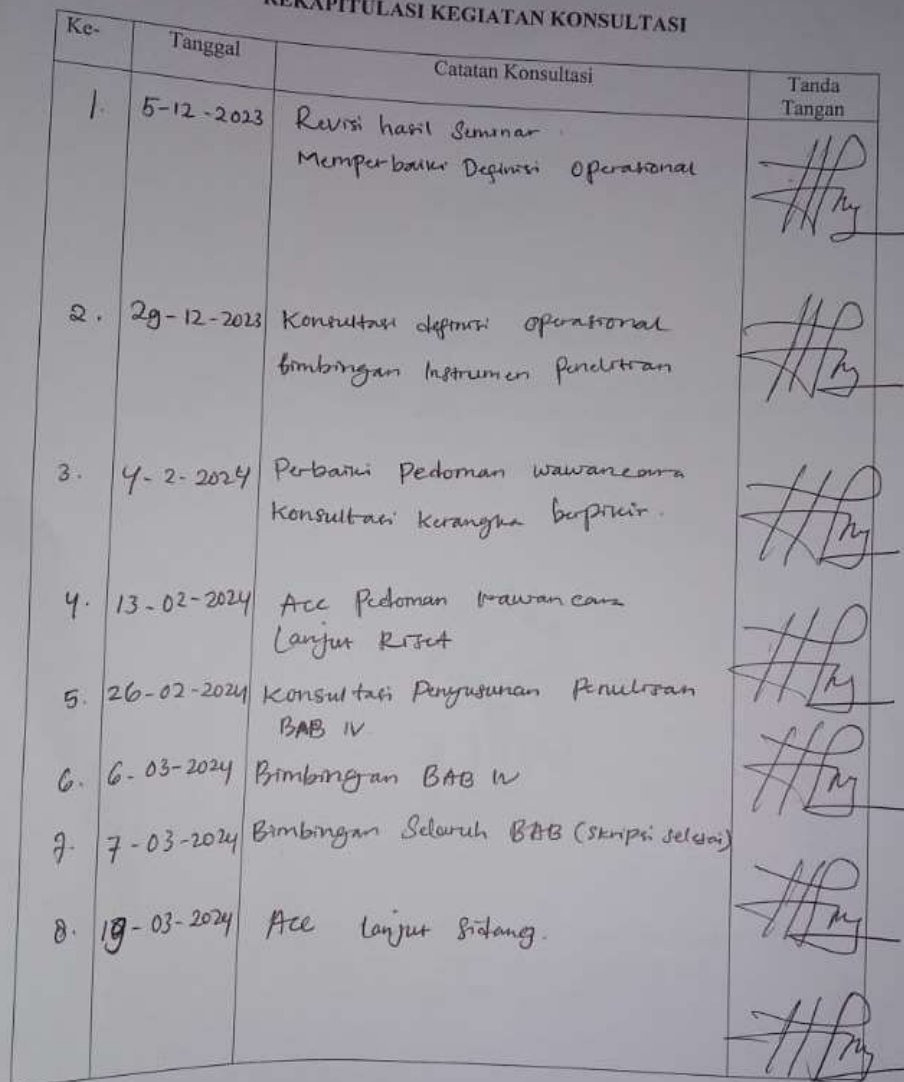 REKAPITULASI KEGIATAN KONSULTASI
Ke-
Tanggal
Catatan Konsultasi
Tanda
Tangan
1. 5-12-2023 Revisi hasil Seminar.
Memperbaiki Definisi Operasional
2. 29-12-2023 Konsultasi definisi operasional
bimbingan Instrumen Penelitian
3. 4-2-2024 Perbaiki Pedoman wawancara
Konsultasi Kerangka berpikir.
4. 13-02-2024 Acc Pedoman wawancara
Lanjut Riset
5. 26-02-2024 Konsultasi Penyusunan Penulisan
BAB IV
6. 6-03-2024 Bimbingan BAB IV
7. 7-03-2024 Bimbingan Seluruh BAB (Skripsi selesai)
8. -03-2024 Acc Lanjut Sidang.